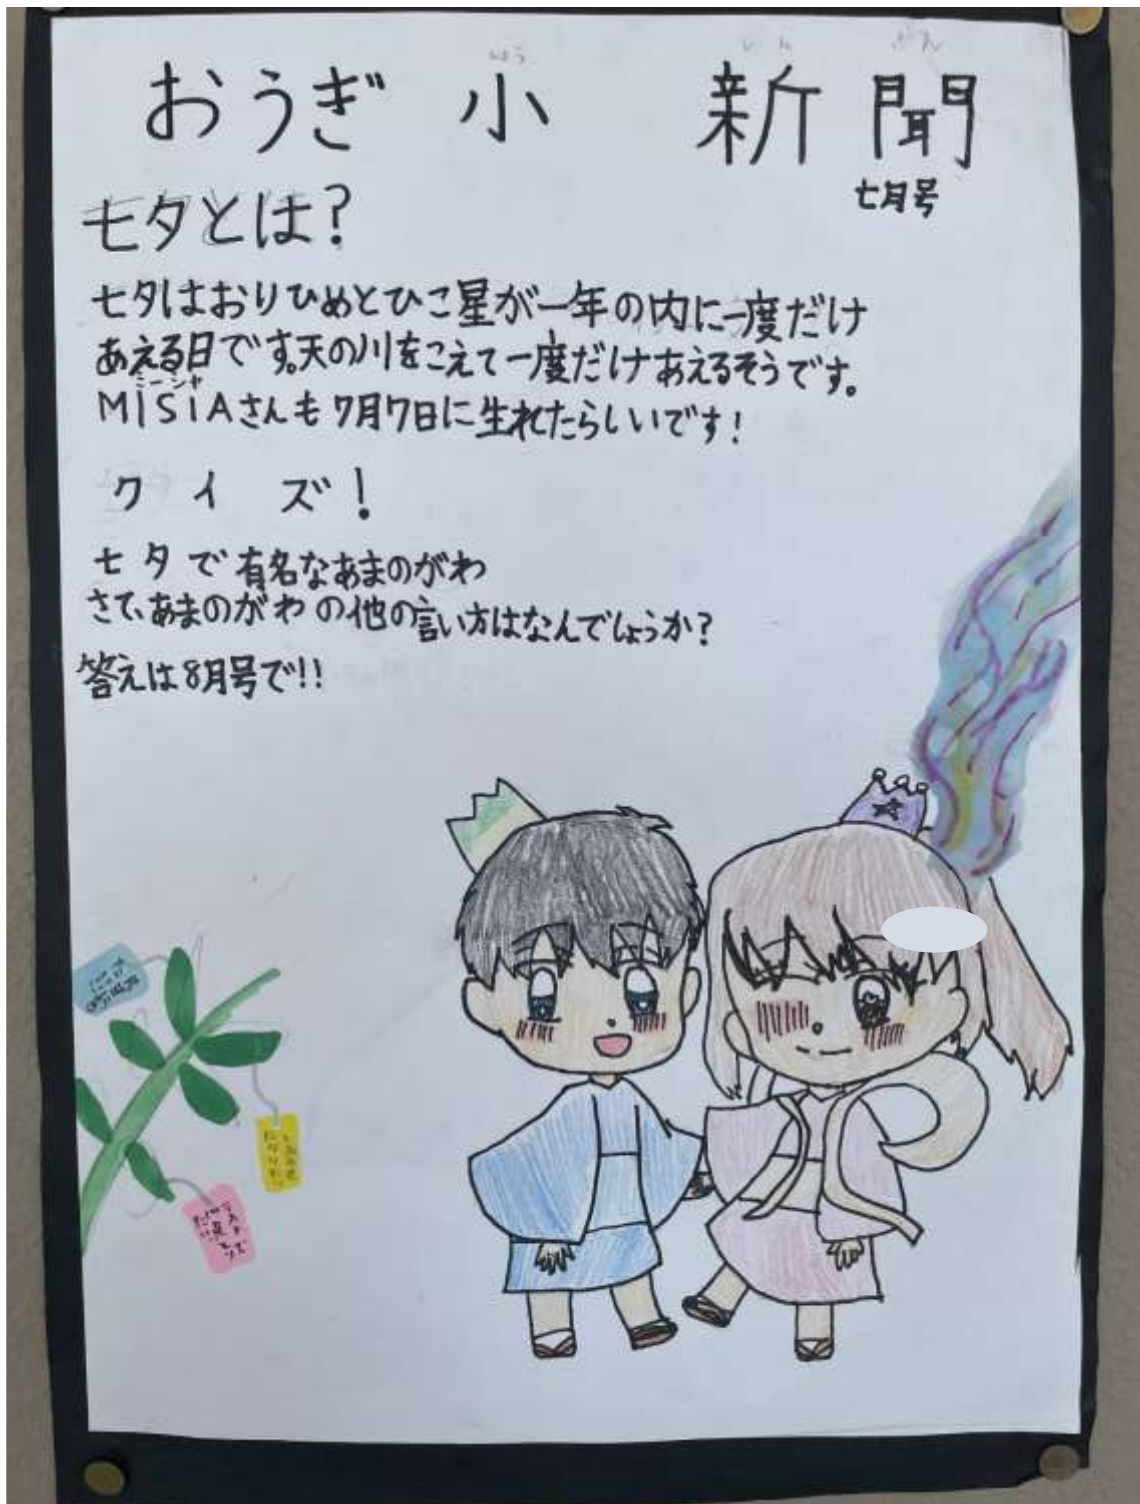 おうぎ小 新聞
しょう しん ぶん
七月号
七夕とは?
七夕はおりひめとひこ星が一年の内に一度だけ
あえる日です。天の川をこえて一度だけあえるそうです。
ミーシャ
MISIAさんも7月7日に生れたらしいです!
クイズ!
七夕で有名なあまのがわ
さて、あまのがわの他の言い方はなんでしょうか?
答えは8月号で!!